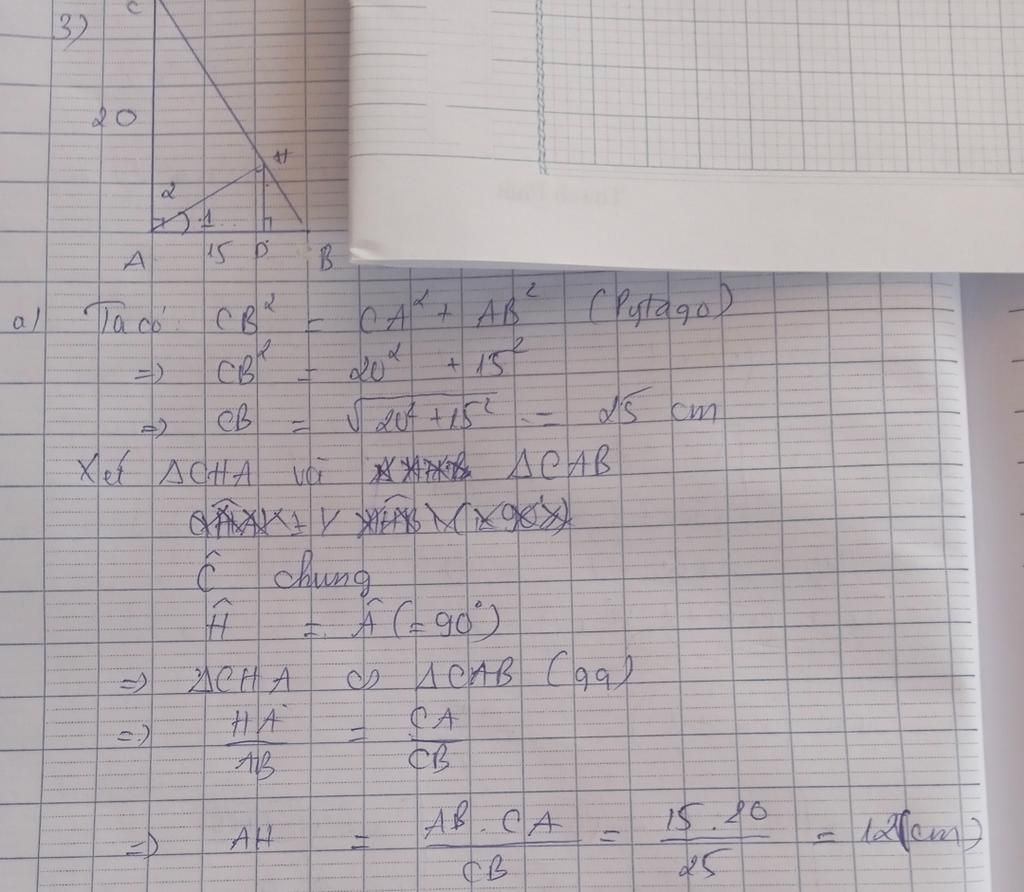 3)
C
20
H
2
1
A 15 D B
a) Ta có: CB² = CA² + AB² (Pytago)
=> CB² = 20² + 15²
=> CB = √20² + 15² = 25 cm
Xét ΔCHA và ΔCAB
Ĉ chung
Ĥ = Â (= 90°)
=> ΔCHA ∽ ΔCAB (gg)
=> HA/AB = CA/CB
=> AH = AB . CA/CB = 15 . 20/25 = 12(cm)